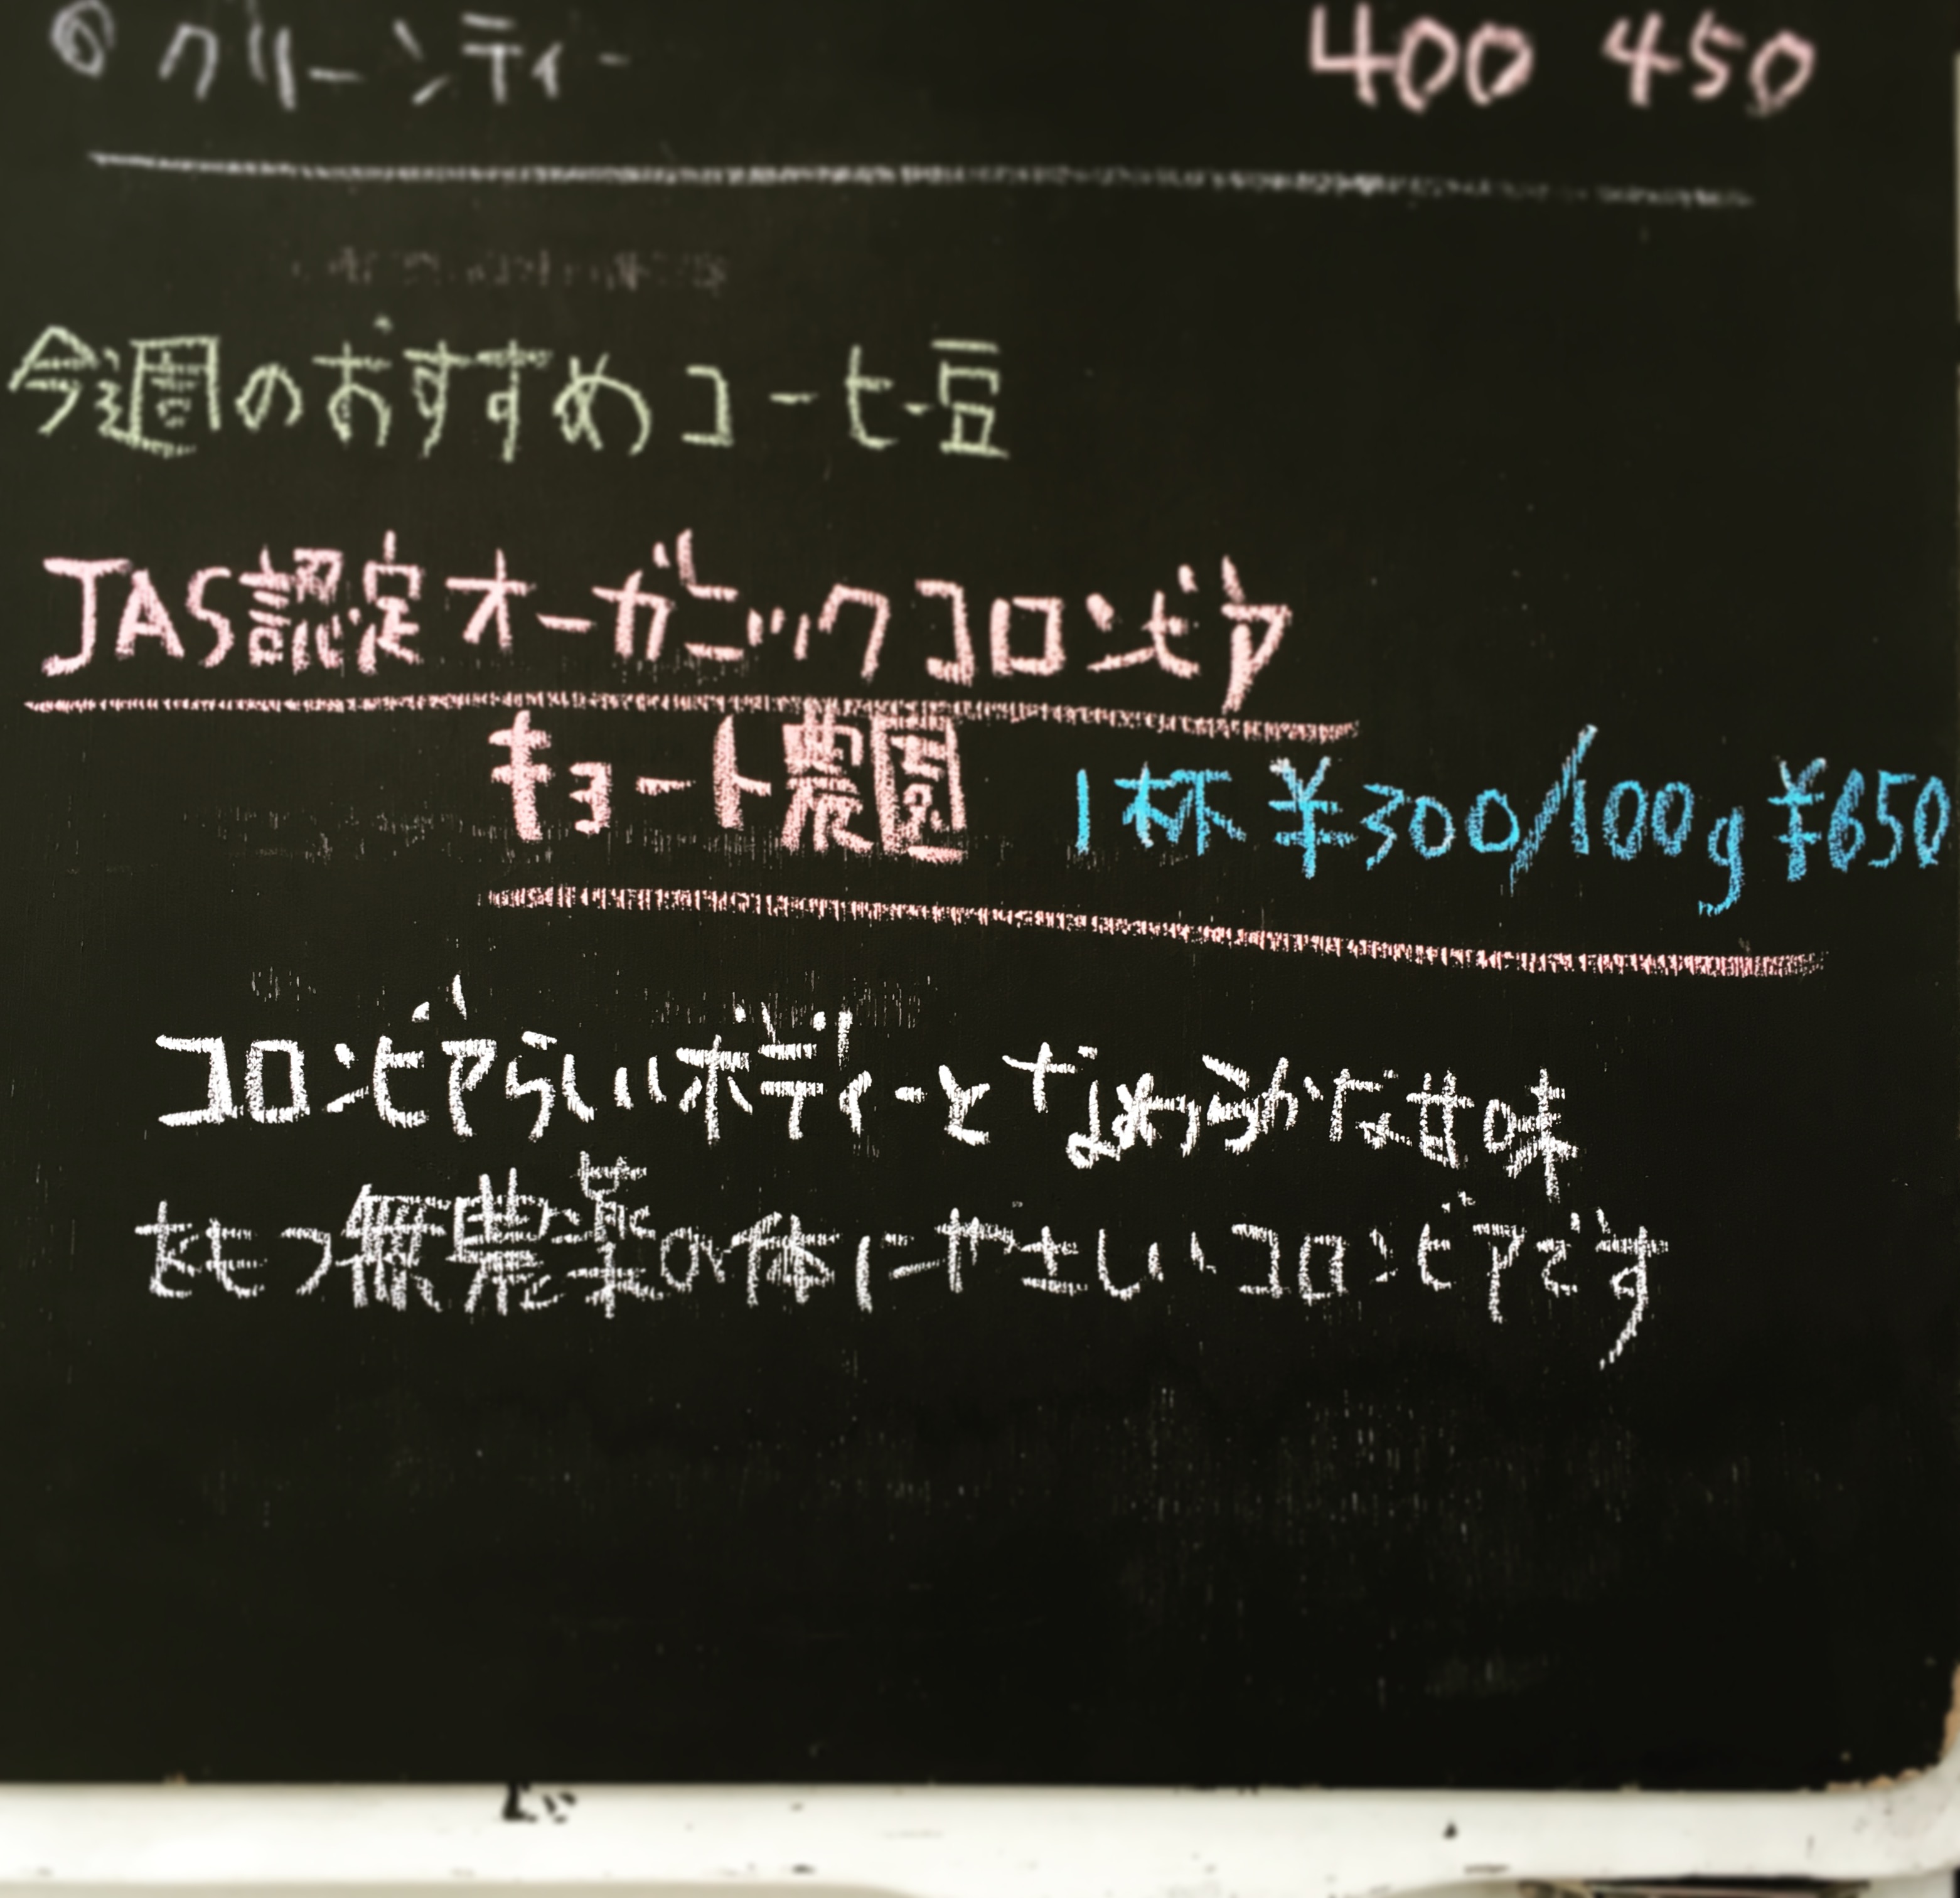 ◎グリーンティー 400 450
今週のおすすめコーヒー豆
JAS認定オーガニックコロンビア
キョート農園 1杯¥300/100g¥650
コロンビアらしいボディーとなめらかな甘味
をもつ無農薬の体にやさしいコロンビアです